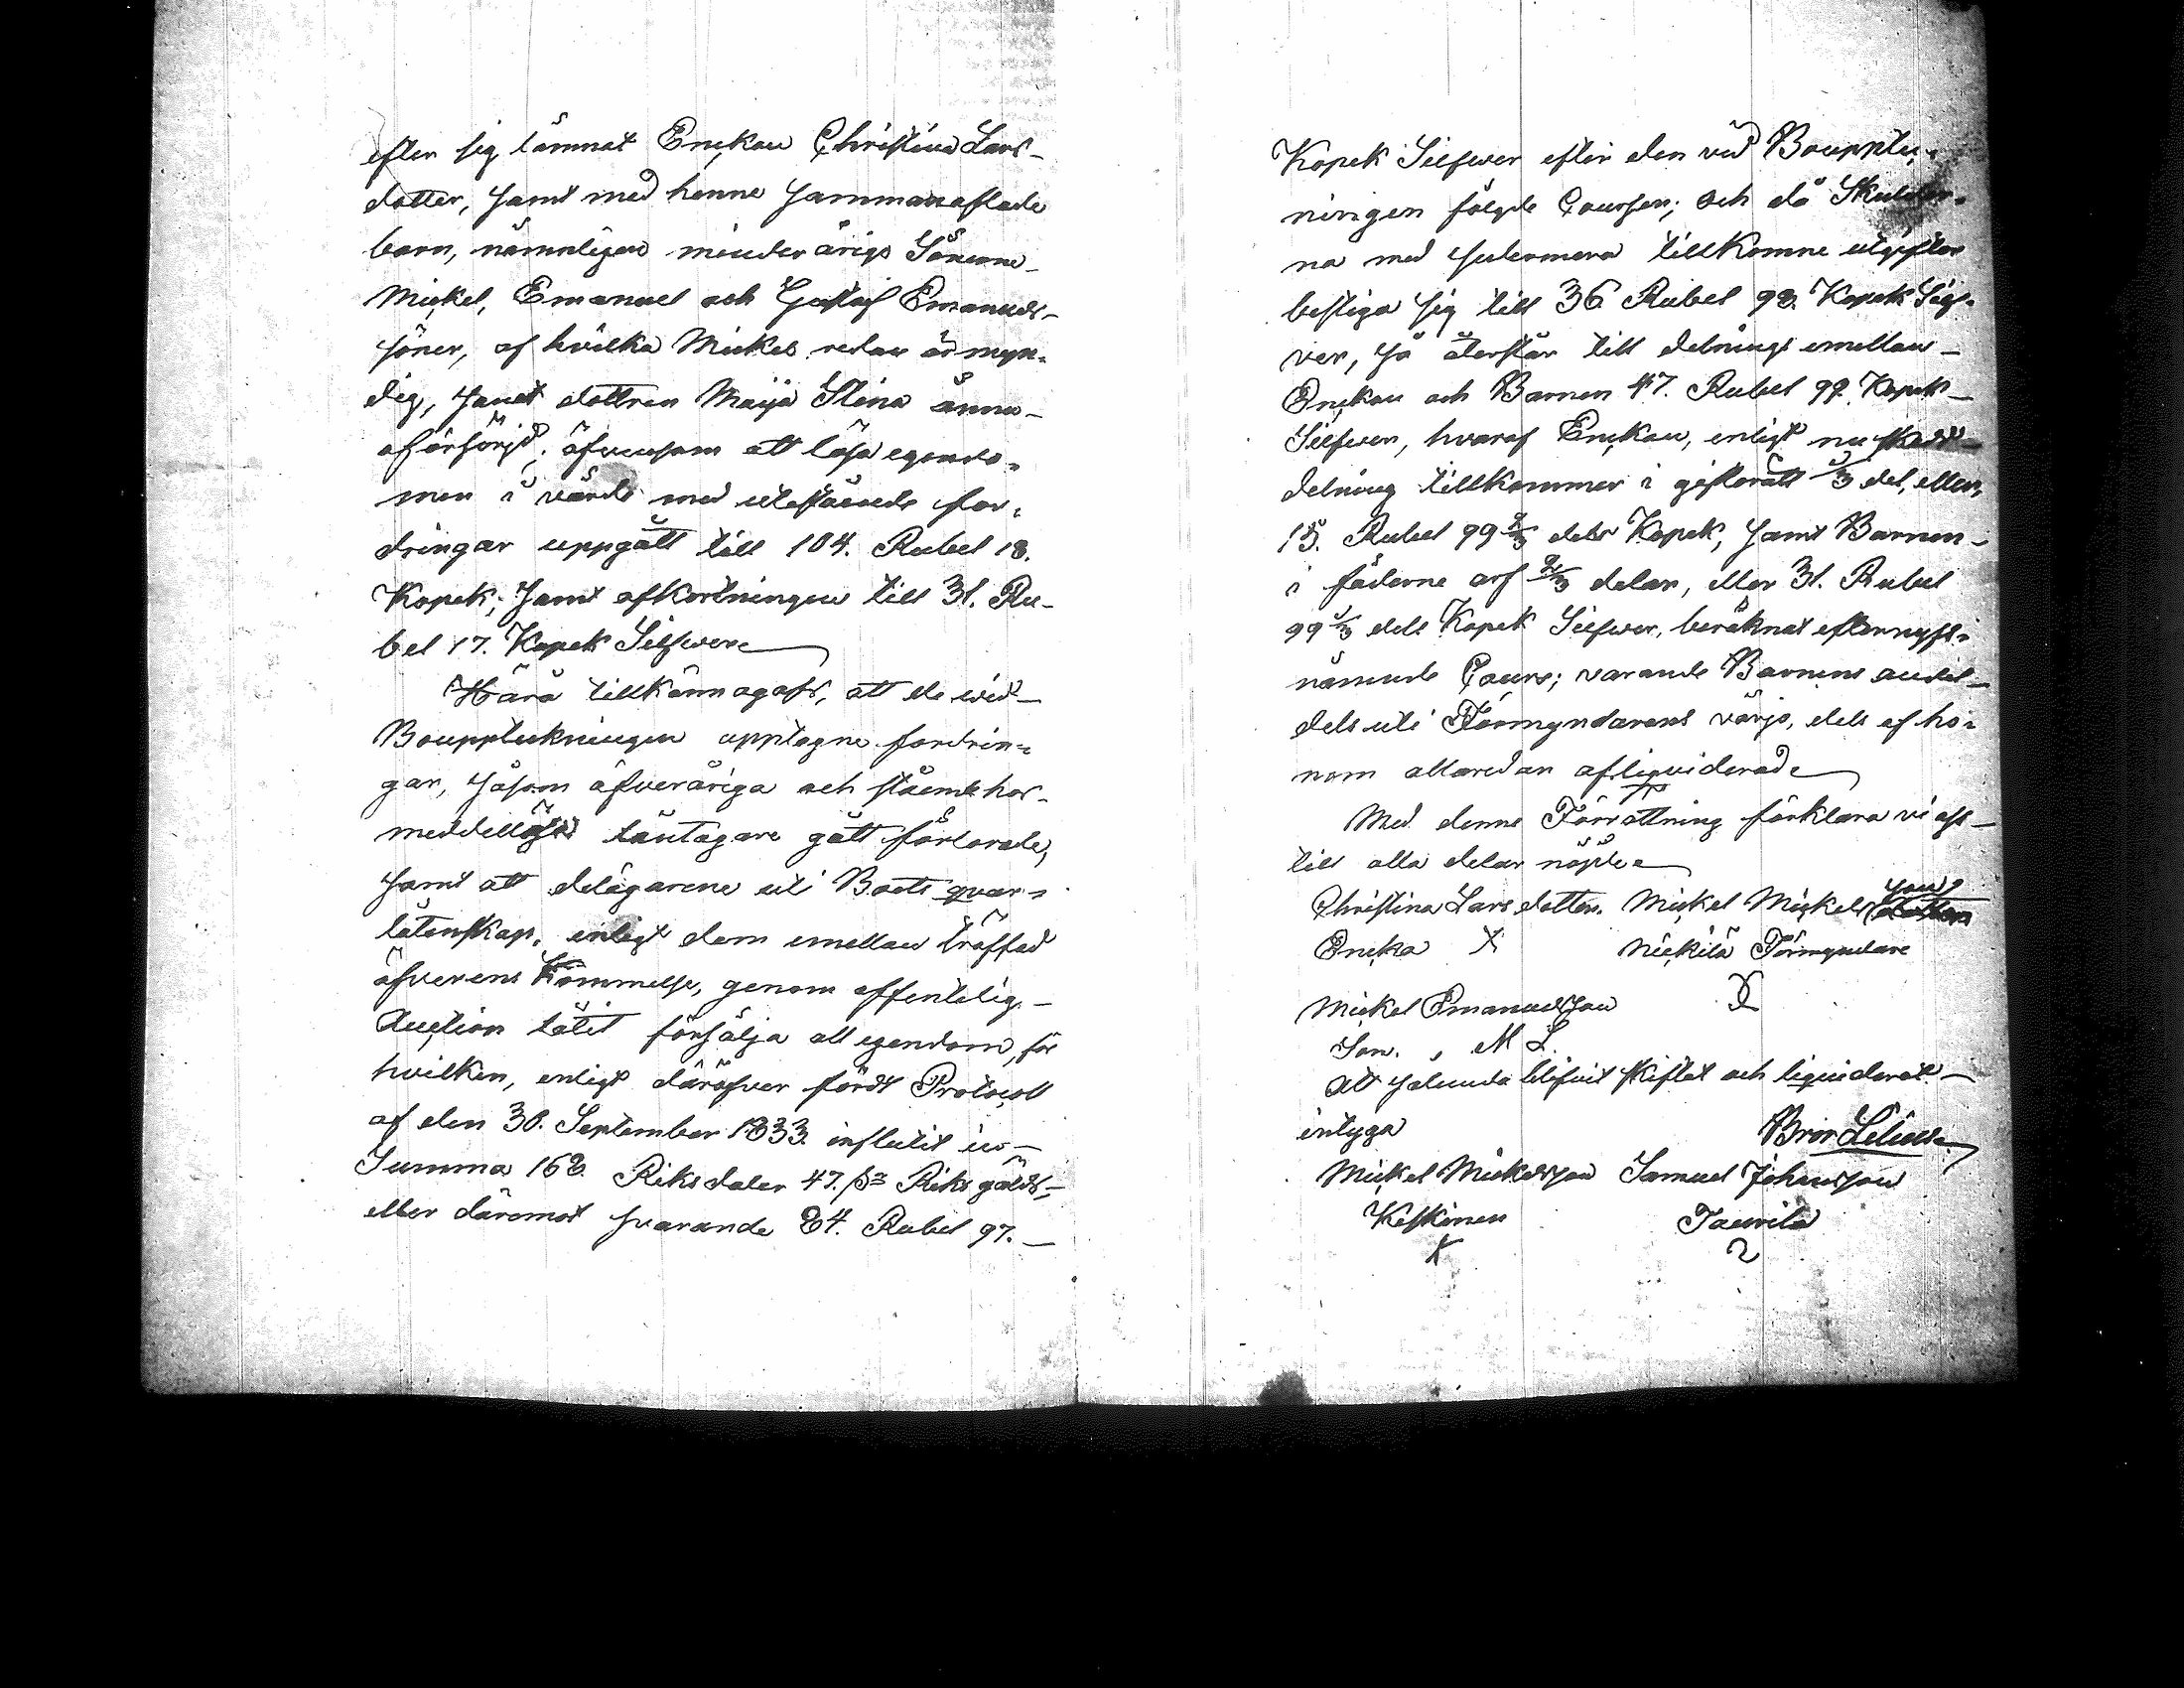 efter sig lämnat Enckan Christina Lars-
dotter, samt med henne sammanaflade
barn, nämnligen minderårige Sönerne
Mickel, Emanuel och Gustaf Emanuels-
söner, af hvilka Mickel redan är myn-
dig, samt dottren Maija Stina ännu
oförsörjd; äfvensom att lösa egendo-
men i värde med utestående for-
dringar uppgått till 104. Rubel 18.
Kopek; samt afkortningen till 31. Ru-
bel 17. Kopek Silfwer
Härå tillkännagafs, att de wid
Bouppteckningen upptagne fordrin-
gar, såsom äfveråriga och stående hos
meddellöse låntagare gått förlorade,
samt att delägarene uti Boets qvar-
låtenskap, enligt dem emellan träffad
öfverenskommelse, genom offentelig
Auction låtit försälja all egendom, för
hvilken, enligt däröfver fördt Protocoll
af den 30. September 1833. influtit in
Summa 168. Riksdaler 47. s Riksgälds,
eller däremot svarande 84. Rubel 97.
Kopek Silfwer efter den vid Bouppteck-
ningen följde Coursen; och då Skulder-
na med sedermera tillkomne utgifter
bestiga sig till 36 Rubel 98. Kopek Silf-
ver, så återstår till delnings emellan
Enckan och Barnen 47. Rubel 99. Kopek
Silfwer, hvaraf Enckan, enligt nu skedd
delning tillkommer i giftorätt 1/3 del, eller,
15. Rubel 99 2/3 dels Kopek, samt Barnen
i fäderne arf 2/3 delar, eller 31. Rubel
99 1/3 dels Kopek Silfwer, beräknat efter nyss-
nämnde Cours; varande Barnens andel
dels uti Förmyndarens värjo, dels af ho-
nom allaredan afliqviderad
Med denne Förrättning förklara vi oss
till alla delar nöjde
Christina Larsdotter. Mickel Mickelsson
Encka X Nickilä Förmyndare
Mickel Emanuelsson
Son. M L.
Att sålunda blifvit skiftat och liquiderat
intyga Bror Lilius
Mickel Mickelsson Samuel Johansson
Keskinen Taurila
X